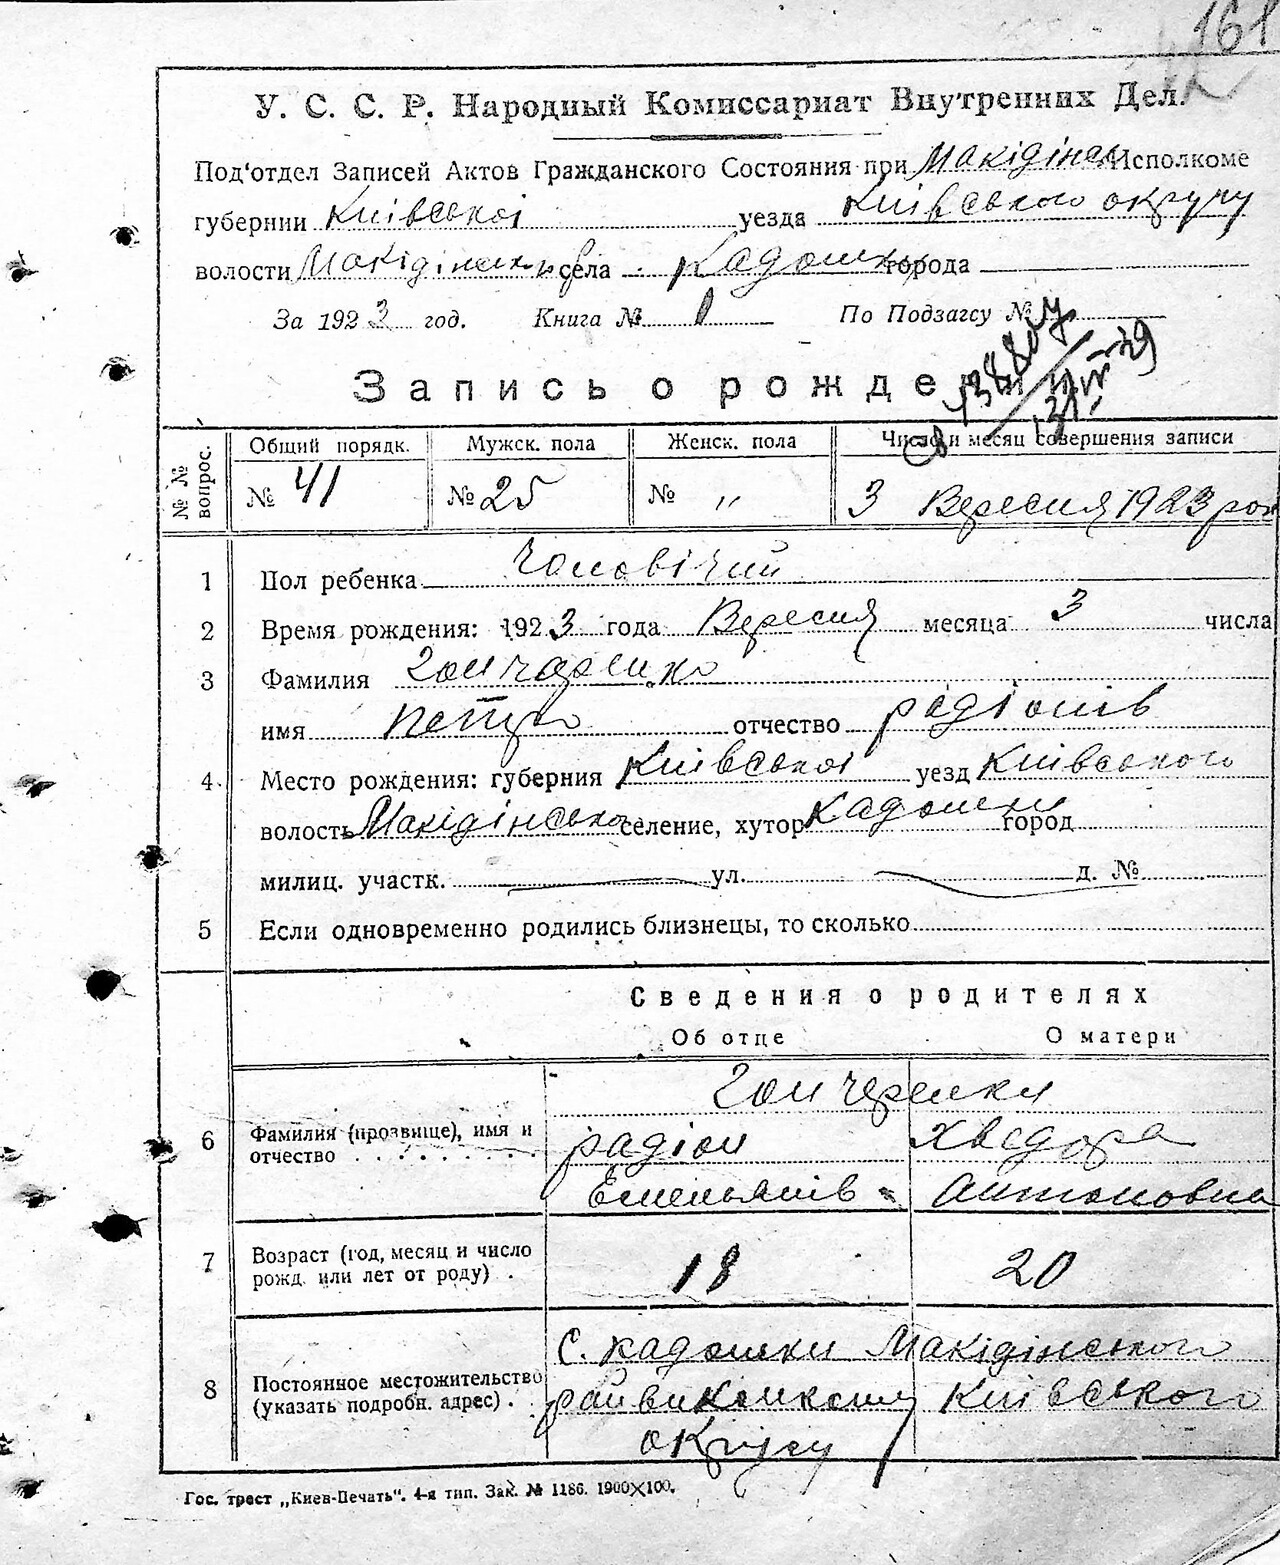 161
У. С. С. Р. Народный Комиссариат Внутренних Дел.
Под'отдел Записей Актов Гражданского Состояния при Макідінськ Исполкоме
губернии Київської уезда Київського округу
волости Макідінськ села Кадомки города
За 1923 год. Книга № 1 По Подзагсу №
Запись о рожде
№ № вопрос. Общий порядк. Мужск. пола Женск. пола Число и месяц совершения записи
№ 41 № 25 № „ 3 Вересня 1923 рок
1 Пол ребенка Чоловічий
2 Время рождения: 1923 года Вересня месяца 3 числа
3 Фамилия Гончаренко
имя Петро отчество Радіонів
4 Место рождения: губерния Київської уезд Київського
волость Макідінсько селение, хутор Кадомки город
милиц. участк. ул. д. №
5 Если одновременно родились близнецы, то сколько
Сведения о родителях
Об отце О матери
Гончеренки
6 Фамилия (прозвище), имя и отчество Радіон Хведора
Емельянів Антоновна
7 Возраст (год, месяц и число рожд. или лет от роду) . 18 20
С. Кадомки Макідінського
8 Постоянное местожительство (указать подробн. адрес) . райвиконкому Київського
округу
Гос. трест „Киев-Печать“. 4-я тип. Зак. № 1186. 1900×100.